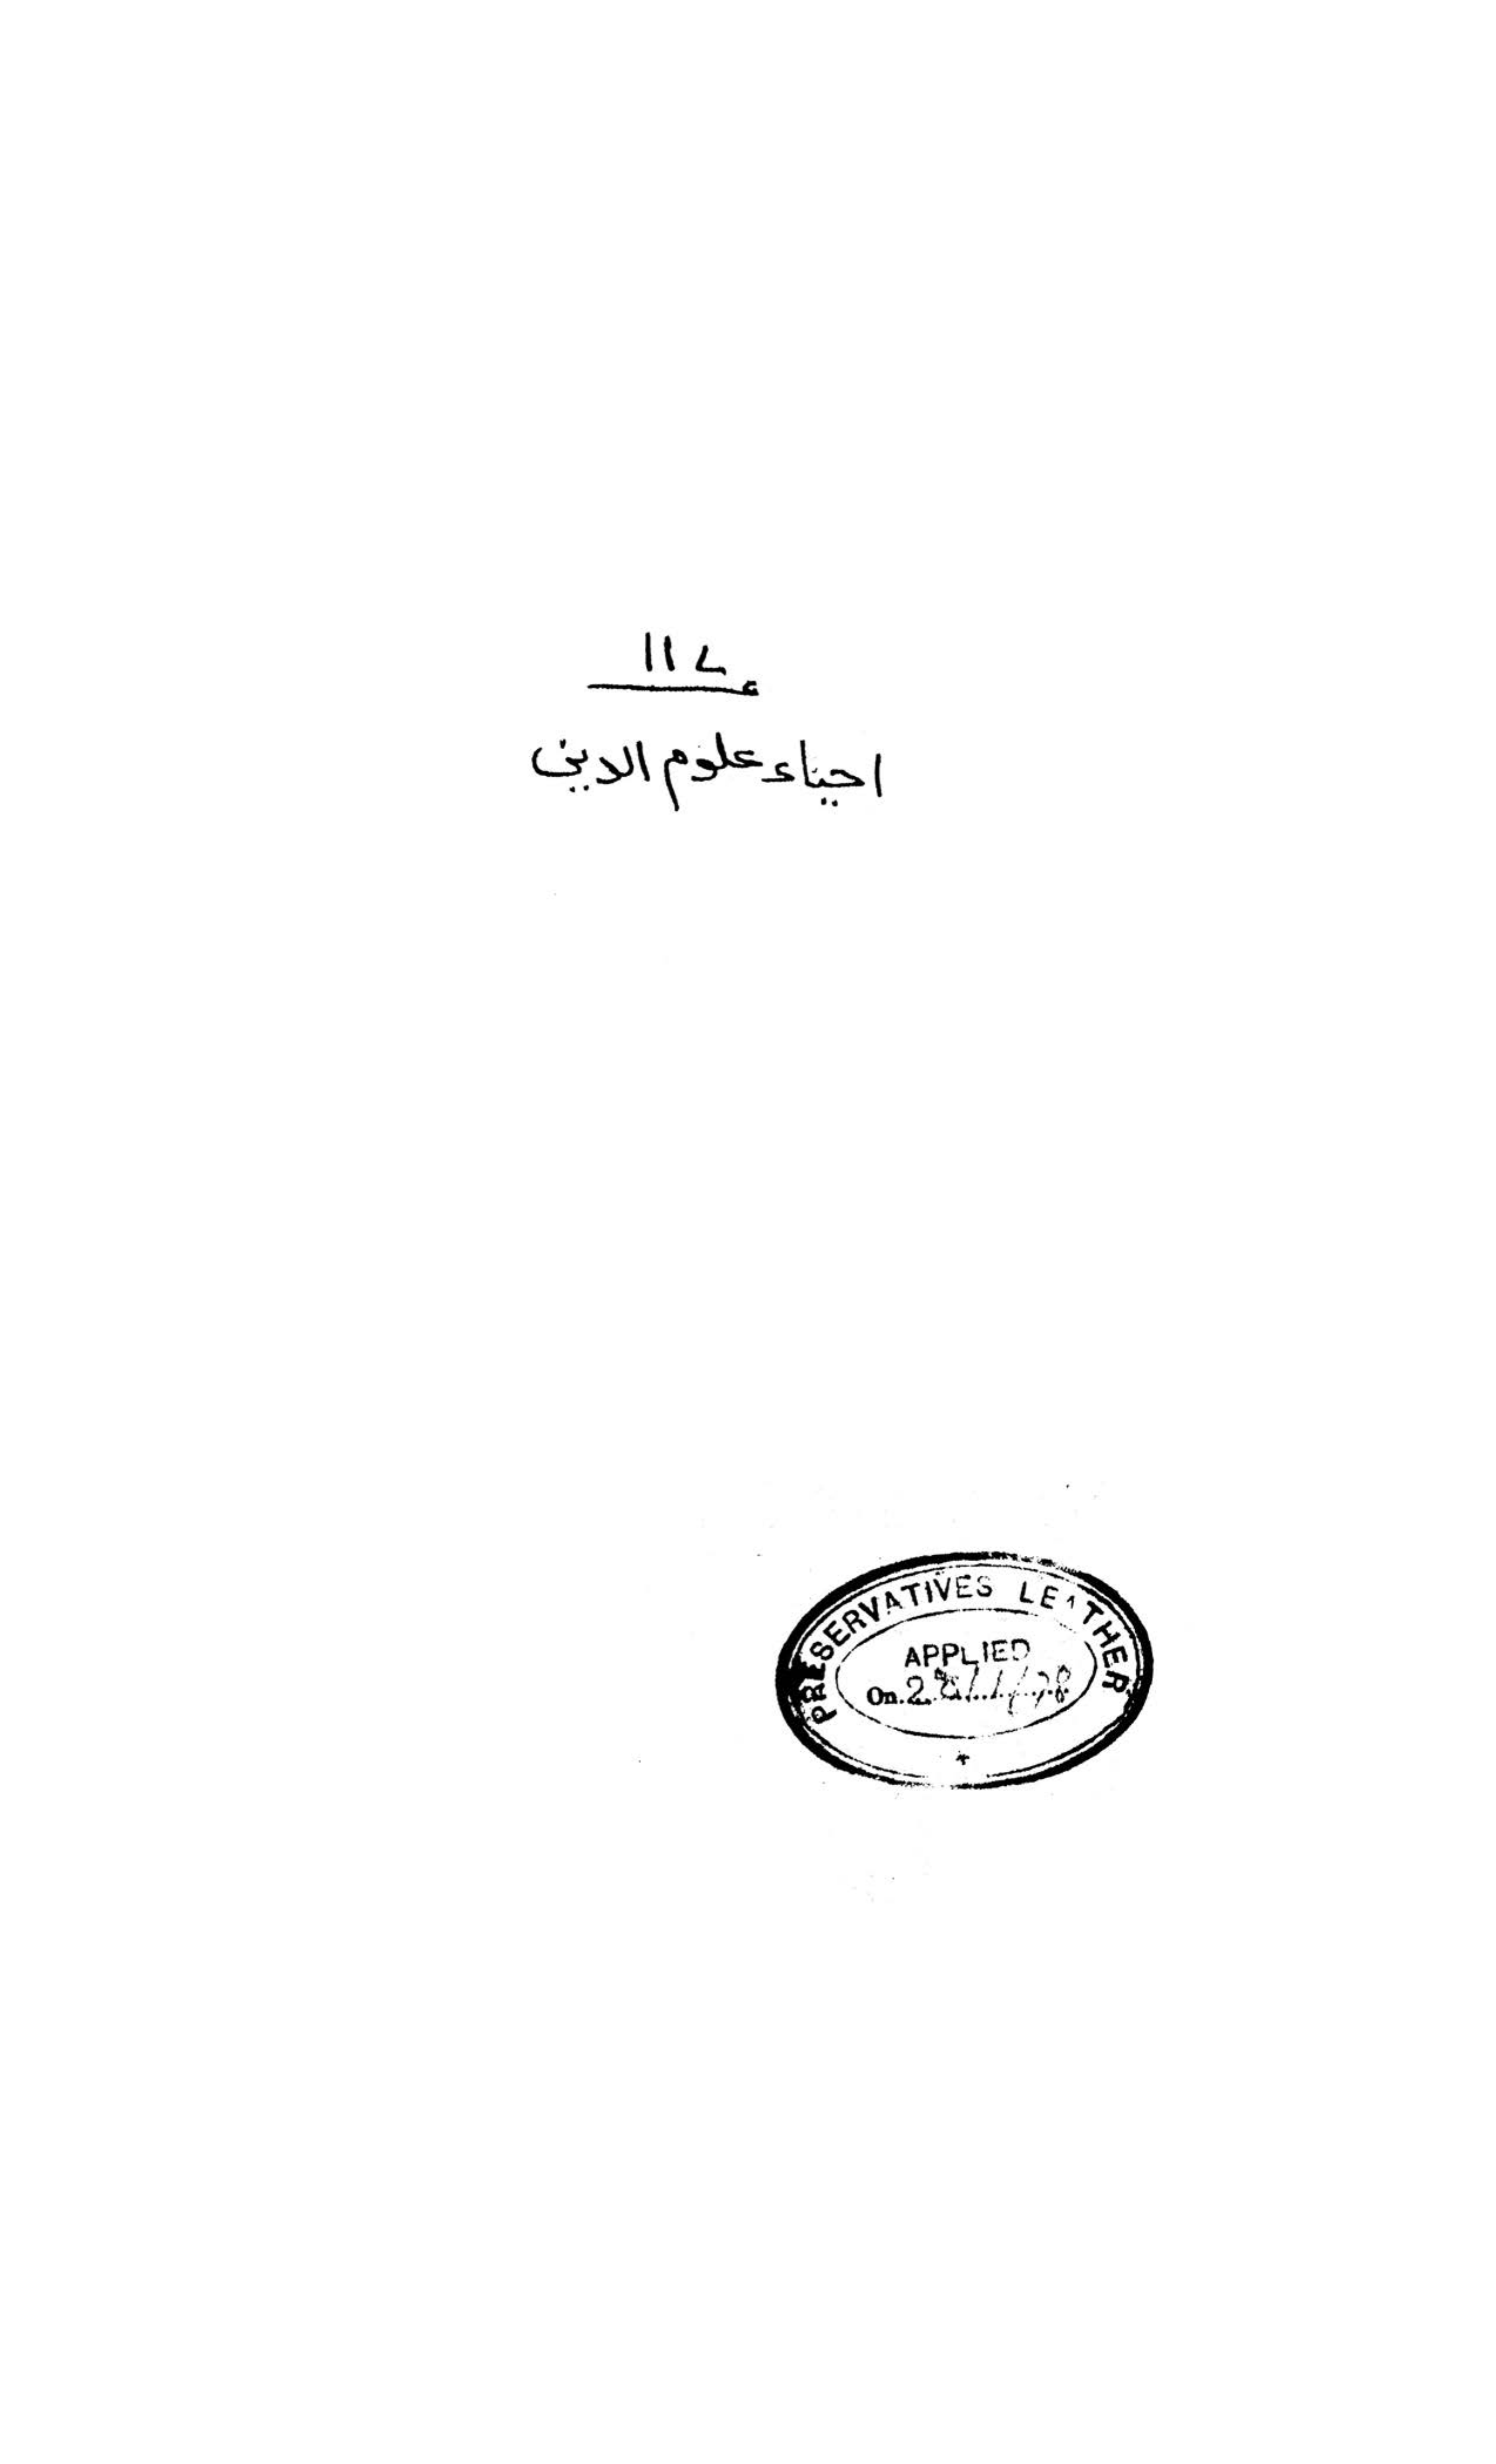 احياء علوم الدين
PRESERVATIVES LEATHER
APPLIED
On